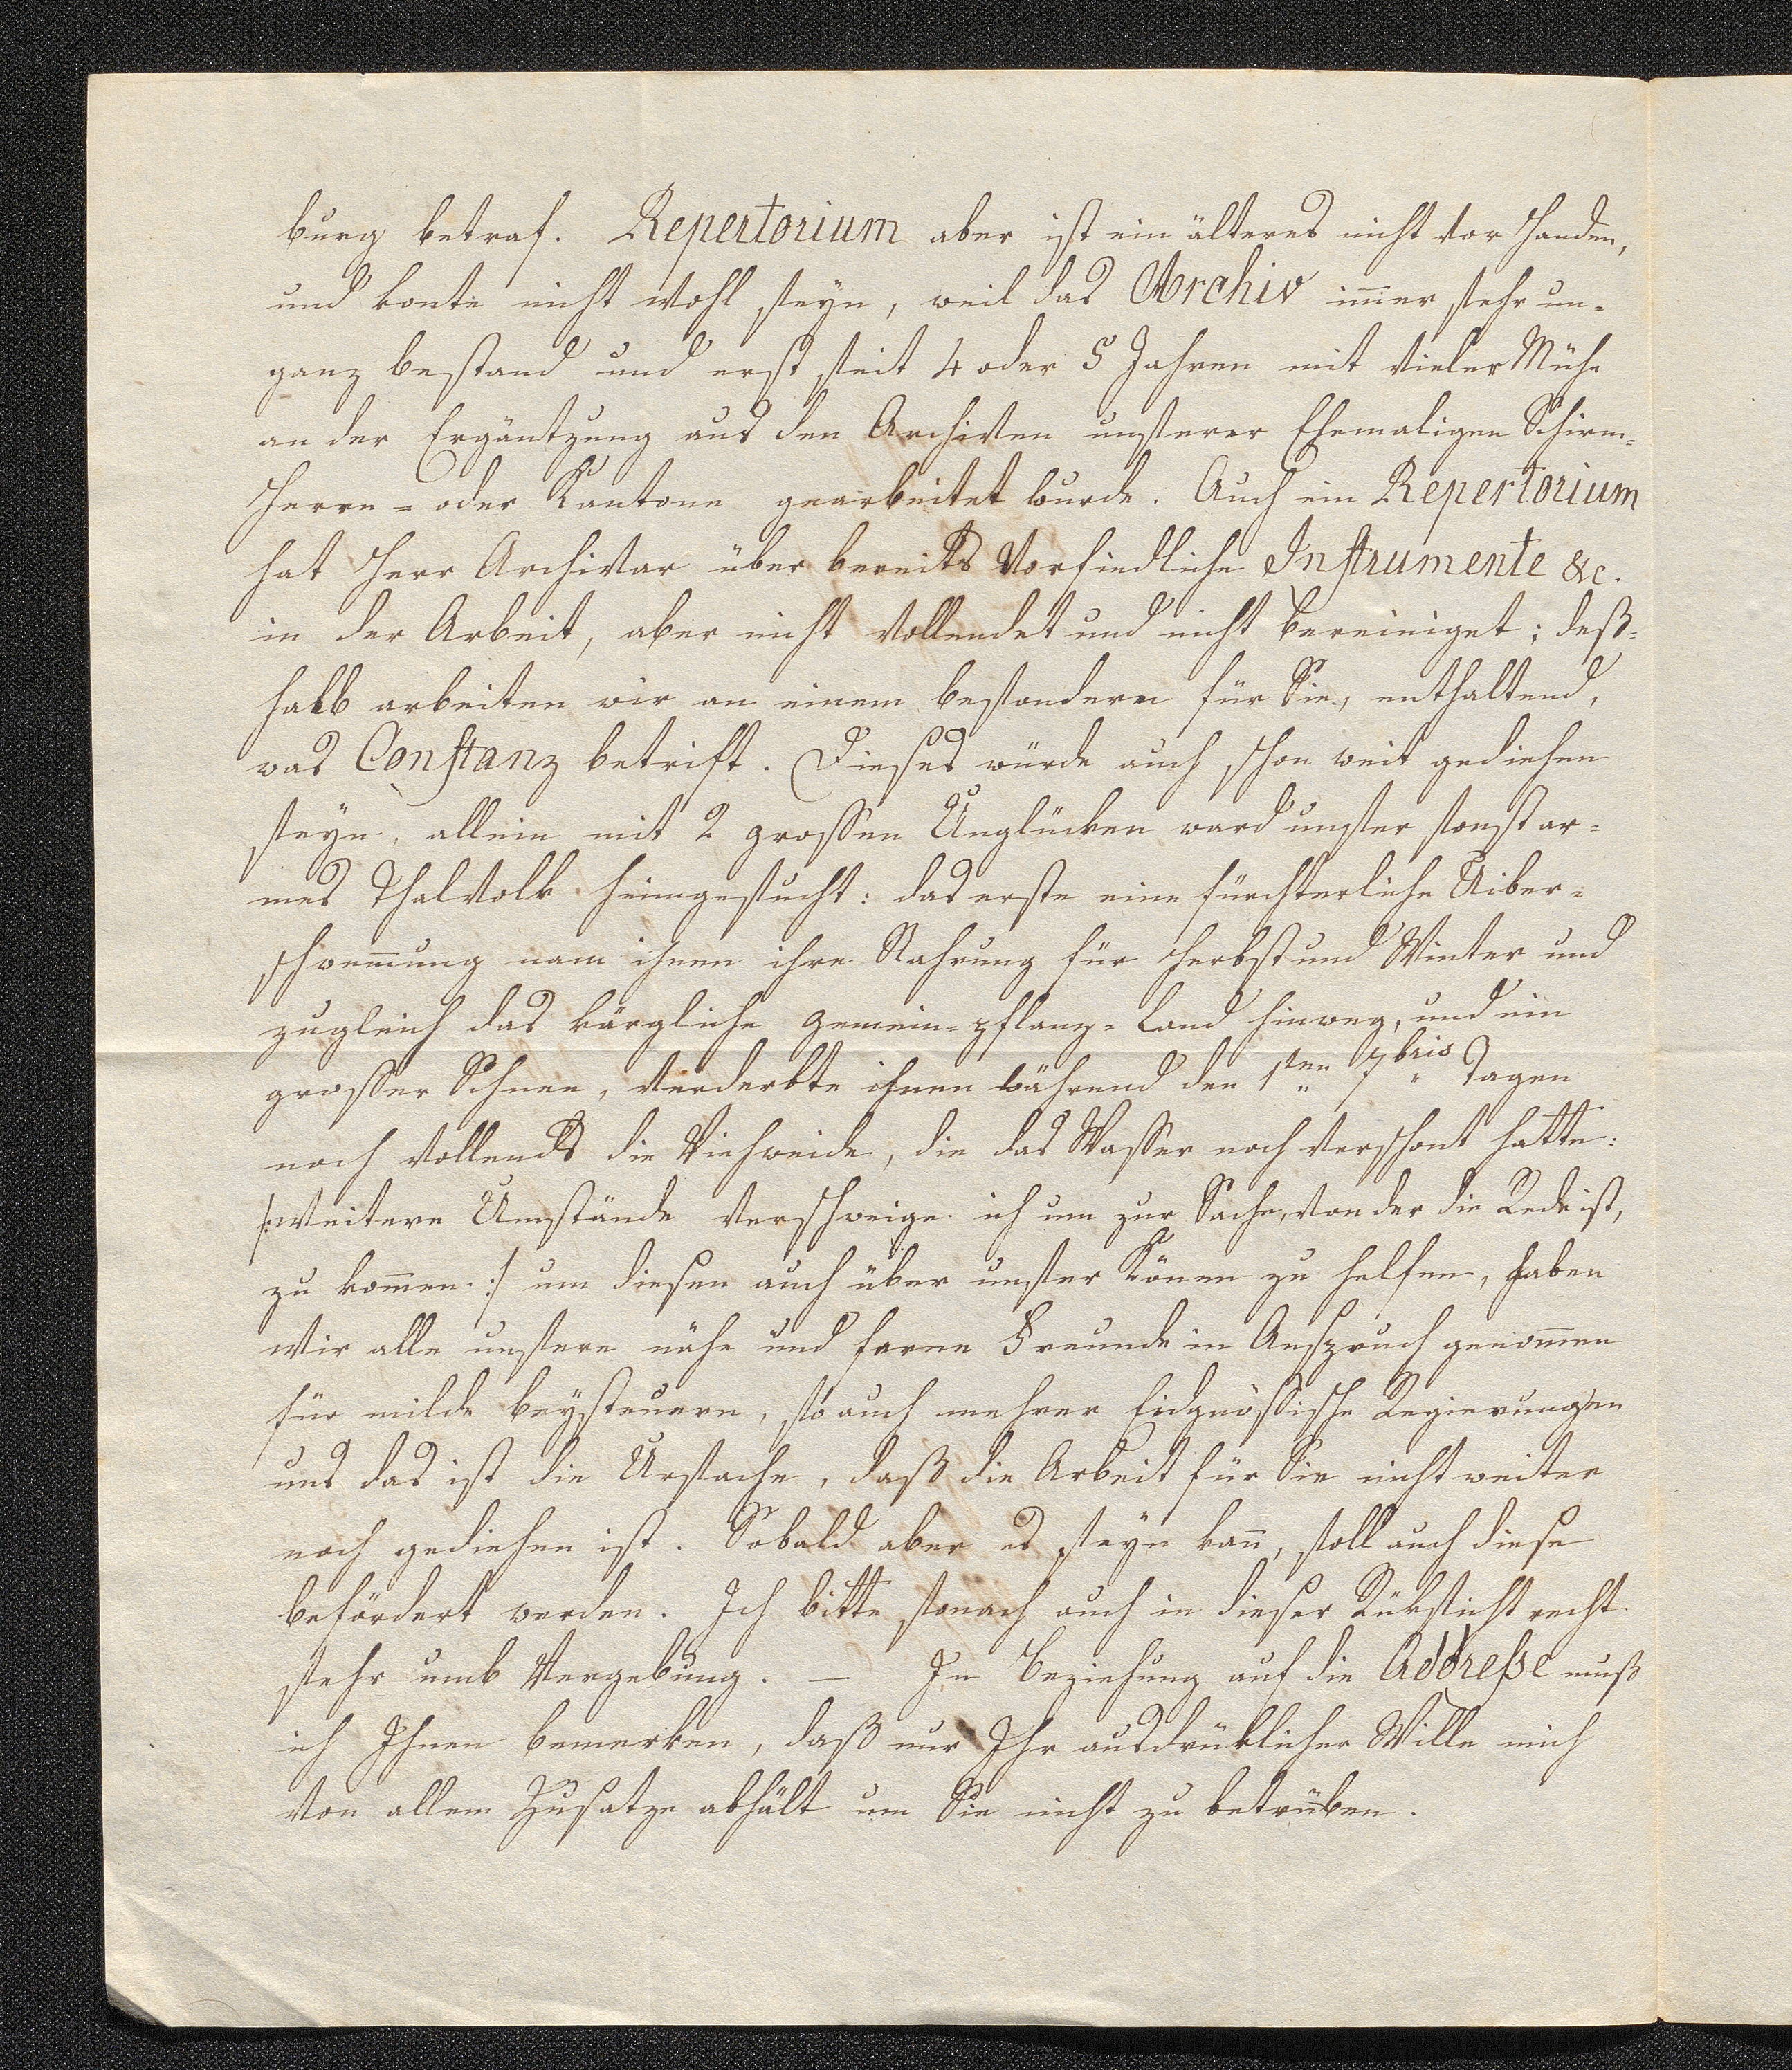 burg betraf. Repertorium aber ist ein älteres nicht vor Handen,
und konte nicht wohl seyn, weil das Archiv im̅er sehr un-
ganz bestand und erst seit 4 oder 5 Jahren mit vieler Mühe
an der Ergäntzung aus den Archiven unserer Ehemaligen Schirm-
Herrn- oder Kantone gearbeitet wurde. Auch ein Repertorium
hat Herr Archivar über bereits Vorfindliche Instrumente &c.
in der Arbeit, aber nicht vollendet und nicht bereiniget; deß-
halb arbeiten wir an einem besondern für Sie, enthaltend,
was Constanz betrift. Dieses würde auch schon weit gediehen
seyn, allein mit 2 grossen Unglücken ward unser sonst ar-
mes Thalvolk heimgesucht: das erste eine fürchterliche Uiber-
schwem̅ung nam ihnen ihre Nahrung für Herbst und Winter und
zugleich das kärgliche Gemein-pflanz-Land hinweg, und ein
grosser Schnee, verderbte ihnen während den 1ten 7bris Tagen
noch vollends die Viehweide, die das Wasser noch verschont hatte:
/:weitere Umstände verschweige ich um zur Sache, von der die Rede ist,
zu kom̅en.:/ um diesen auch über unser Könen zu helfen, haben
wir alle unsere nähe und ferne Freunde in Anspruch genom̅en
für milde beysteuern, so auch mehrer Eidgnössische Regierungen
und das ist die Ursache, daß die Arbeit für Sie nicht weiter
noch gediehen ist. Sobald aber es seyn kan̅, soll auch diese
befördert werden. Ich bitte sonach auch in dieser Rüksicht recht
sehr umb Vergebung. — In Beziehung auf die Addresse muß
ich Ihnen bemerken, daß nur Ihr ausdrüklicher Wille mich
von allem Zusatze abhält um Sie nicht zu betrüben.